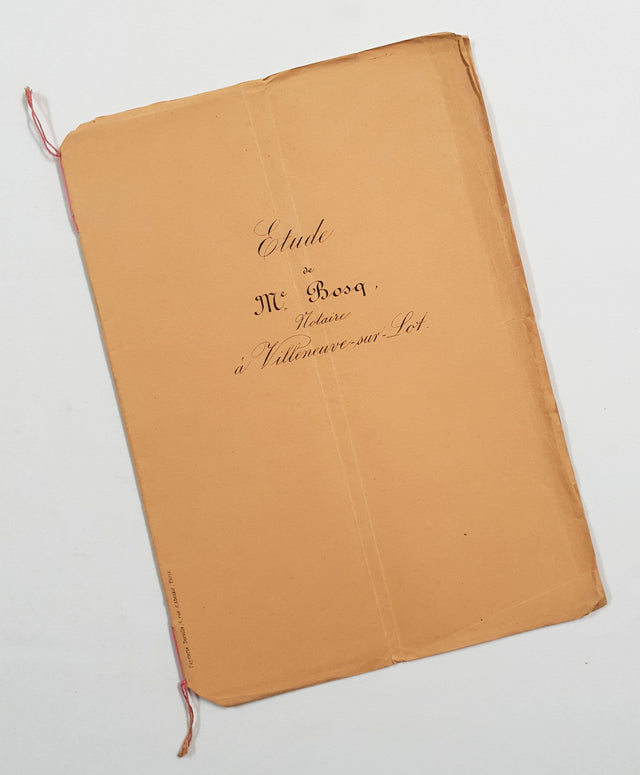 Etude
de
Me. Bosq,
Notaire
à Villeneuve-sur-Lot.